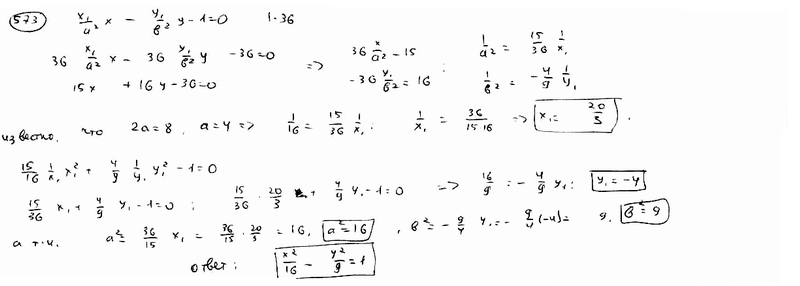 573 x₁/a² x − y₁/b² y − 1 = 0 | · 36
36 x₁/a² x − 36 y₁/b² y − 36 = 0 => 36 x/a² − 15 ; 1/a² = 15/36 1/x₁
15x + 16y − 36 = 0 −36 y₁/b² = 16 1/b² = −4/9 1/y₁
известно, что 2a = 8, a = 4 => 1/16 = 15/36 1/x₁ ; 1/x₁ = 36/15·16 => x₁ = 20/3 .
15/16 1/x₁ x₁² + 4/9 1/y₁ y₁² − 1 = 0
15/36 x₁ + 4/9 y₁ − 1 = 0 ; 15/36 · 20/3 + 4/9 y₁ − 1 = 0 => 16/9 = −4/9 y₁ ; y₁ = −4
а т.к. a² = 36/15 x₁ = 36/15 · 20/3 = 16, a² = 16 , b² = −9/4 y₁ = −9/4 (−4) = 9, b² = 9
ответ: x²/16 − y²/9 = 1